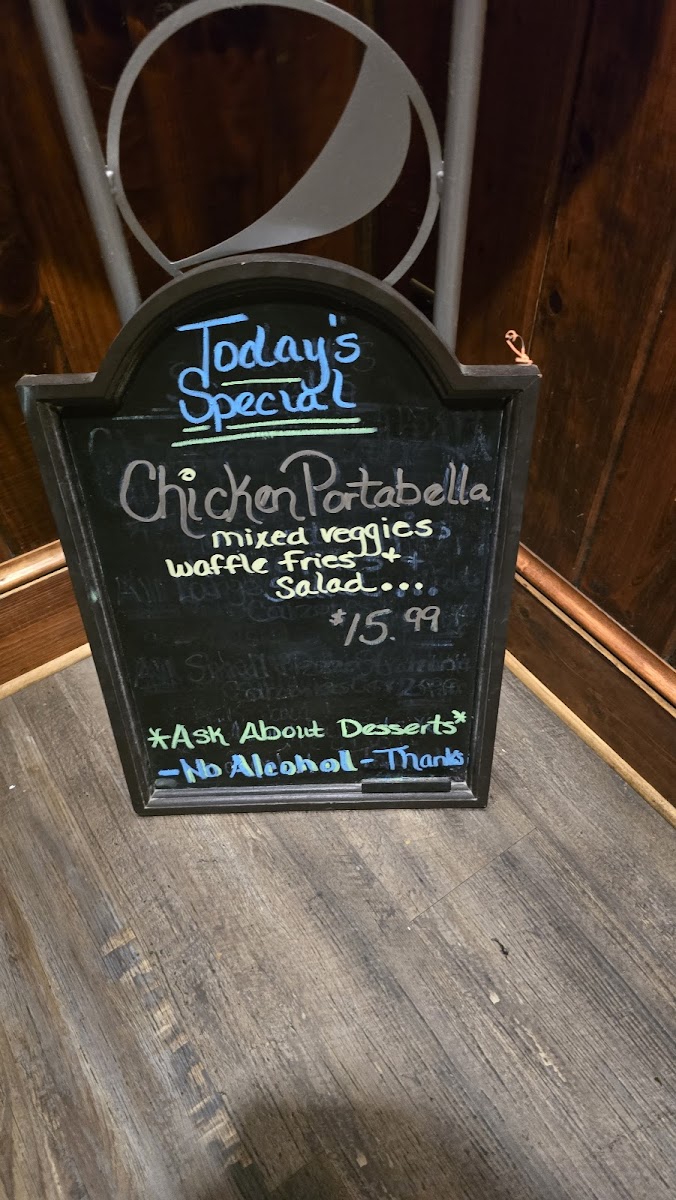 Today's
Special
Chicken Portabella
mixed veggies
waffle fries +
Salad...
$15.99
*Ask About Desserts*
-No Alcohol - Thanks